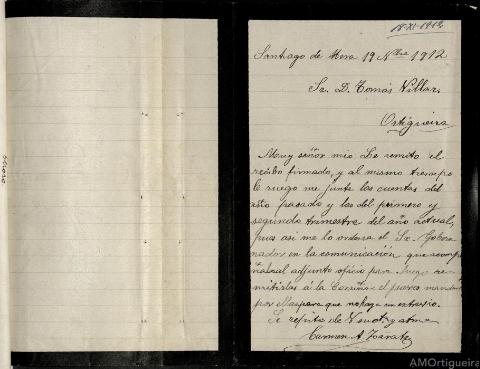 18-XI-1912
Santiago de Mera 19 Nbre 1912
Sr. D. Tomás Villar
Ortigueira
Muy señor mio Le remito el
recibo firmado, y al mismo tiempo
le ruego me junte las cuentas del
año pasado y las del primero y
segundo trimestre del año actual,
pues asi me lo ordena el Sr. Gober
nador en la comunicación que acomp
ña al adjunto oficio para luego re
mitirlas á la Coruña el
por que no haya un extravio.
Se repite de V. atma
Carmen A Zárate
AMOrtigueira